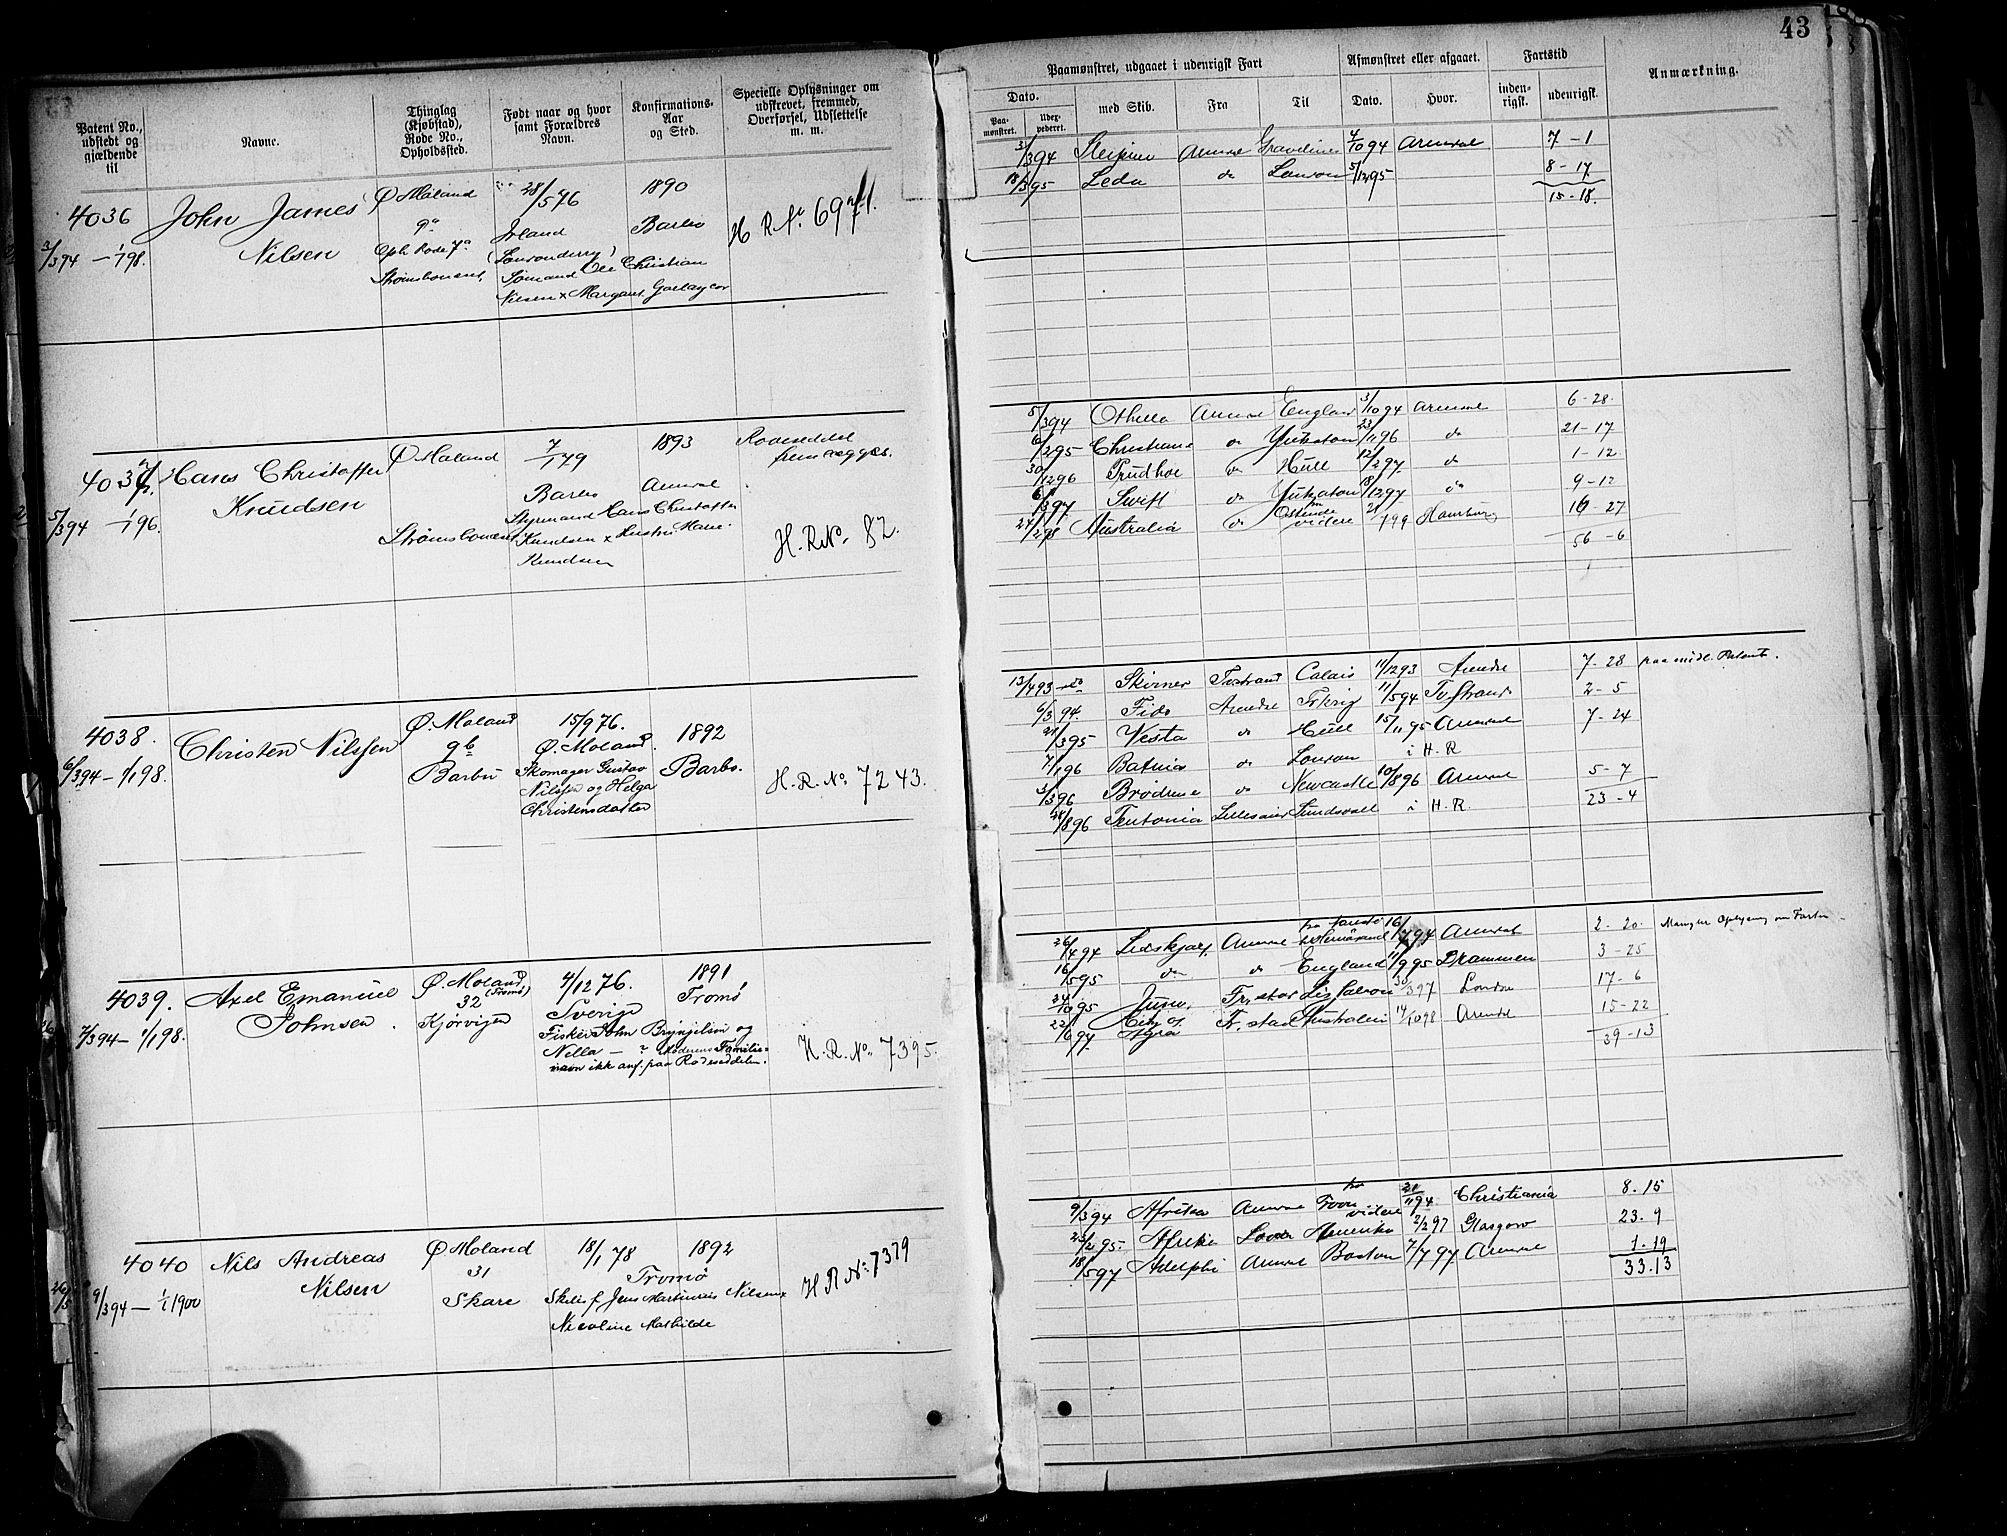 43
Patent No., udstedt og gjældende til
Navne.
Thinglag (Kjøbstad), Rode No., Opholdssted.
Født naar og hvor samt Forældres Navn.
Konfirmations-Aar og Sted.
Specielle Oplysninger om udskrevet, fremmed, Overførsel, Udslettelse m. m.
Paamønstret, udgaaet i udenrigsk Fart
Afmønstret eller afgaaet.
Fartstid
Anmærkning.
Dato.
Paamønstret.
med Skib.
Fra
Til
Dato.
Hvor.
indenrigsk.
udenrigsk.
4036
3/3 94 — 1/1 98.
John James
Nilsen
Ø Moland
9a
Oph Rode 7a
28/5 76
Irland
(Londonderry)
Sømand Ole Christian
Nilsen x Margaret
1890
Barbo
H R No 6971.
3/3 94 Sleipner Arendal Gravelines 4/10 94 Arendal 7 - 1
18/3 95 Leda do London 5/12 95 8 - 17
15 - 18.
4037
5/3 94 — 1/1 96.
Hans Christoffer
Knudsen
Ø Moland
Strømsbouene
7/1 79
Barbo
Styrmand Hans Christoffer
Knudsen x Hustru Marie
Knudsen
1893
Arendal
Rodeseddel
fremlægges.
H. R No. 82.
5/3 94 Othello Arendal England 3/10 94 Arendal 6 - 28.
6/2 95 Christiane do Yukatan 23/11 96 do 21 - 17
30/12 96 Prudhoe do Hull 12/2 97 do 1 - 12
6/3 97 Swift do Yukatan 18/12 97 do 9 - 12
24/2 98 Australia do Ostende videre 21/7 99 Hamburg 16 - 27
56 - 6
4038.
6/3 94 — 1/1 98.
Christen Nilssen
Ø. Moland
9b
Barbu
15/9 76.
Ø. Moland.
Skomager Gustav
Nilssen og Helga
Christensdatter
1892
Barbo.
H. R. No. 7243.
13/4 93 Skirner Tvedestrand Calais 11/12 93 Arendal 7 - 28 paa midl. Patent.
6/3 94. Fido Arendal 11/5 94 Tv.strand 2 - 5
21/3 95 Vesta do Hull 15/11 95 Arendal 7 - 24
7/1 96 Batavia do London i H. R
3/3 96 Brodrene do Newcastle 10/8 96 Arendal 5 - 7
23 - 4
28/8 96 Teutonia Lillesand Sundsvall i H. R.
4039.
7/3 94 — 1/1 98.
Axel Emanuel
Johnsen.
Ø. Moland
(Tromø)
32
Kjørvigen
4/12 76.
Sverige
Fisker John Brynjelsen og
Nilla — ? Moderens Familie-
navn ikke anf. paa Rodeseddelen.
1891
Tromø
H. R. No. 7395.
26/4 94 Lidskjalf Arendal 16/7 94 Arendal 2 - 20. Mangler Oplysning om Farten
16/5 95 do do England 11/9 95 Drammen 3 - 25
24/10 95 Juno Fr.stad Lissabon 30/3 97 London 17 - 6
22/6 97 City of Agra Fr.stad Australien 14/10 98 Arendal 15 - 22
39 - 13
4040
9/3 94 — 1/1 1900
Nils Andreas
Nilsen
Ø Moland
31
Skare
18/1 78
Tromø
Skibsf. Jens Martinius Nilsen x
Nicoline Mathilde
1892
H R No. 7379
9/3 94 Afrika Arendal videre 21/11 94 Christiania 8. 15
23/2 95. Afrika Amerika 2/2 97 Glasgow 23. 9
18/5 97 Adelphi Arendal Boston 7/7 97 Arendal 1. 19
33. 13